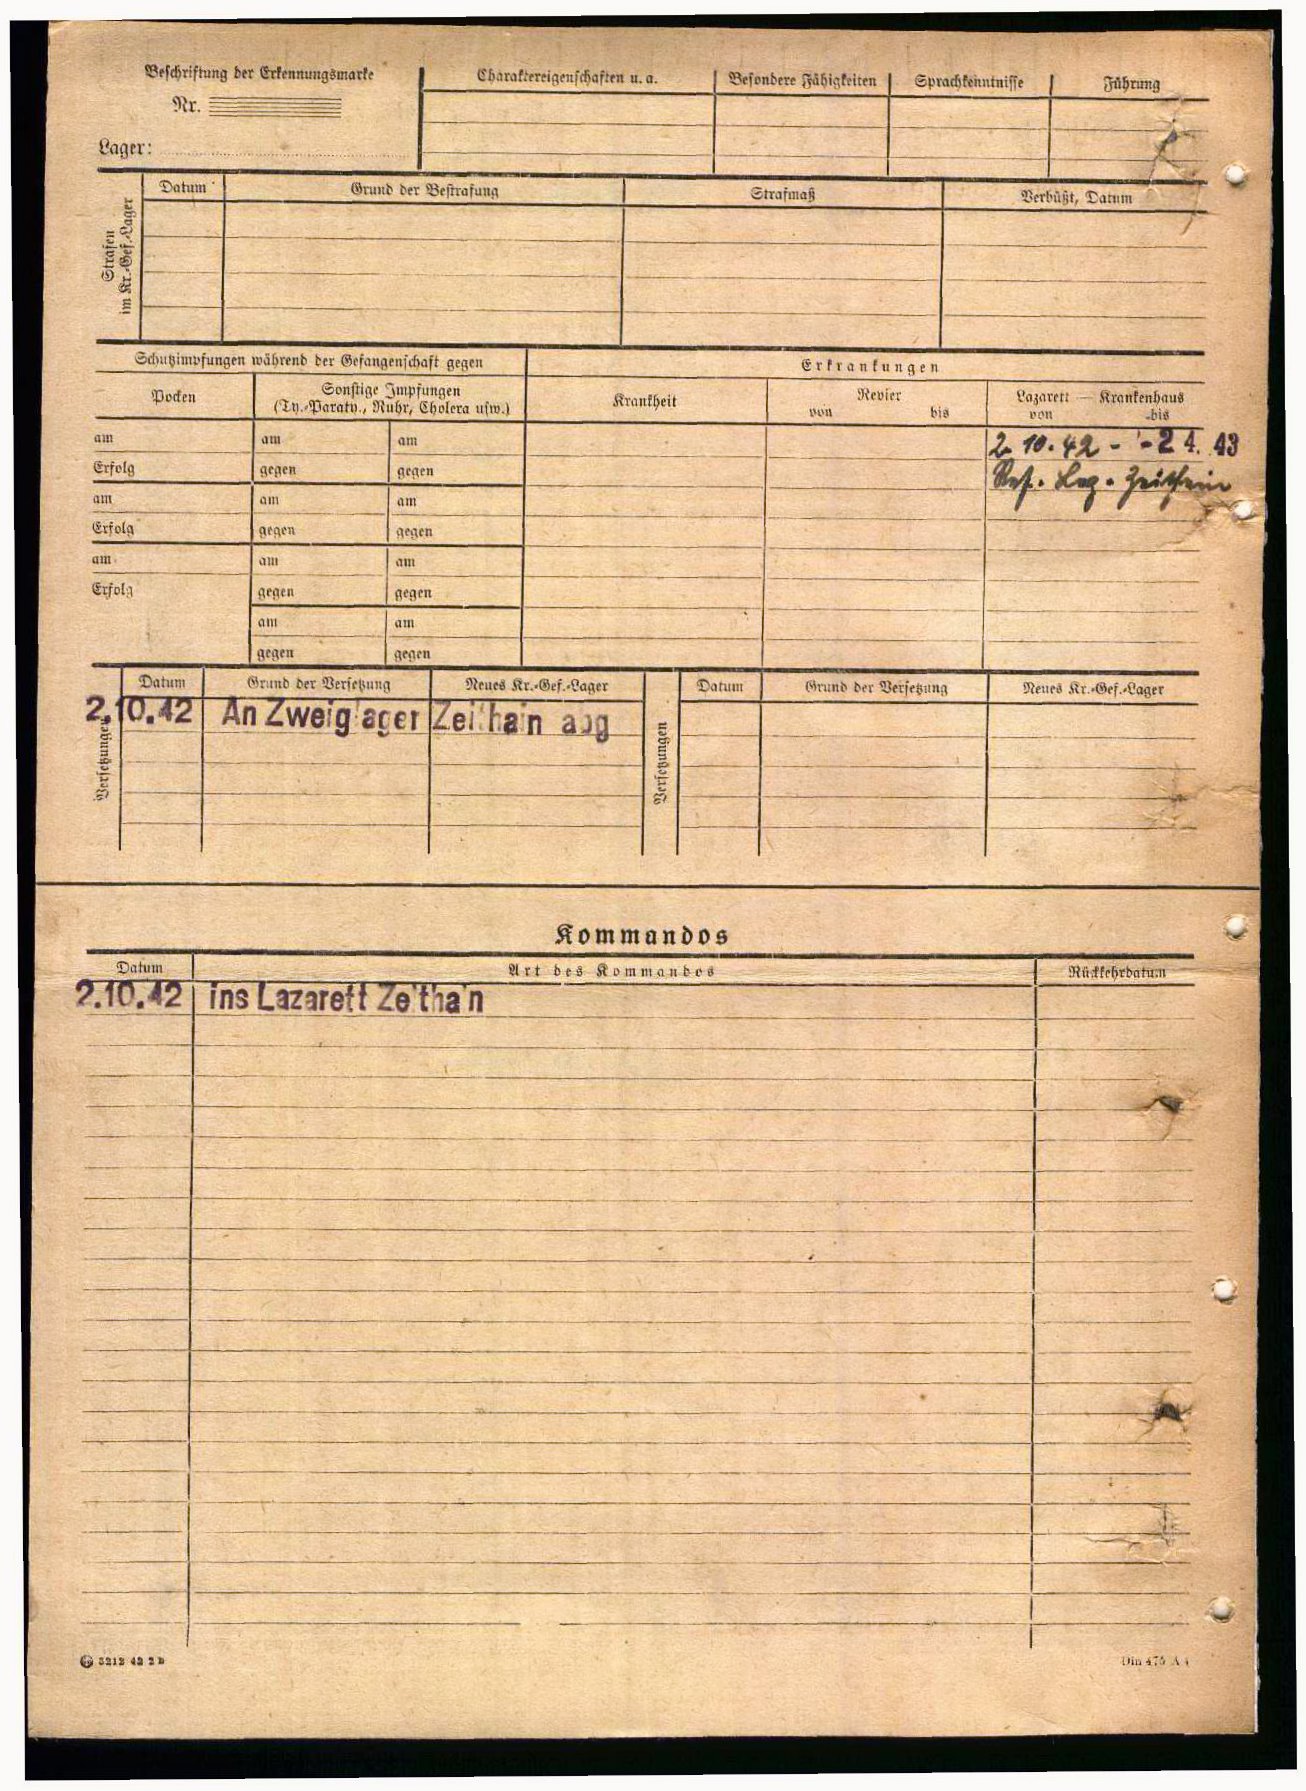 Beschriftung der Erkennungsmarke
Nr.
Lager:
Charaktereigenschaften u. a.
Besondere Fähigkeiten
Sprachkenntnisse
Führung
Strafen
im Kr.-Gef.-Lager
Datum
Grund der Bestrafung
Strafmaß
Verbüßt, Datum
Schutzimpfungen während der Gefangenschaft gegen
Erkrankungen
Pocken
Sonstige Impfungen
(Ty.-Paraty., Ruhr, Cholera usw.)
Krankheit
Revier
von bis
Lazarett — Krankenhaus
von bis
am am am
2. 10. 42 - - 2 4. 43
Erfolg gegen gegen
Res. Laz. Zeithain
am am am
Erfolg gegen gegen
am am am
Erfolg gegen gegen
am am
gegen gegen
Versetzungen
Datum Grund der Versetzung Neues Kr.-Gef.-Lager
2.10.42 An Zweiglager Zeithain abg
Versetzungen
Datum Grund der Versetzung Neues Kr.-Gef.-Lager
Kommandos
Datum Art des Kommandos Rückkehrdatum
2.10.42 ins Lazarett Zeithain
3212 42 2 B
Din 476 A 4